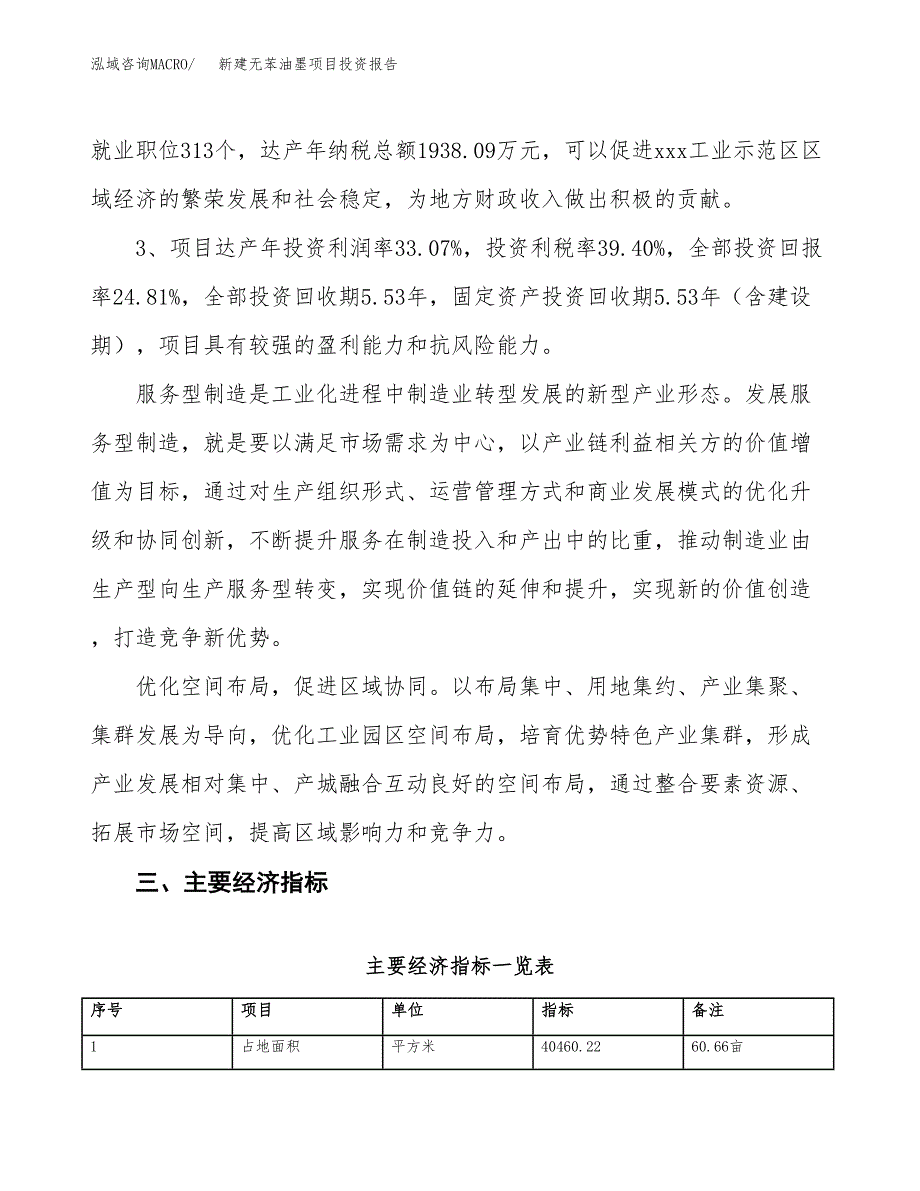 泓域咨询MACRO/ 新建无苯油墨项目投资报告
就业职位313个，达产年纳税总额1938.09万元，可以促进xxx工业示范区区
域经济的繁荣发展和社会稳定，为地方财政收入做出积极的贡献。
3、项目达产年投资利润率33.07%，投资利税率39.40%，全部投资回报
率24.81%，全部投资回收期5.53年，固定资产投资回收期5.53年（含建设
期），项目具有较强的盈利能力和抗风险能力。
服务型制造是工业化进程中制造业转型发展的新型产业形态。发展服
务型制造，就是要以满足市场需求为中心，以产业链利益相关方的价值增
值为目标，通过对生产组织形式、运营管理方式和商业发展模式的优化升
级和协同创新，不断提升服务在制造投入和产出中的比重，推动制造业由
生产型向生产服务型转变，实现价值链的延伸和提升，实现新的价值创造
，打造竞争新优势。
优化空间布局，促进区域协同。以布局集中、用地集约、产业集聚、
集群发展为导向，优化工业园区空间布局，培育优势特色产业集群，形成
产业发展相对集中、产城融合互动良好的空间布局，通过整合要素资源、
拓展市场空间，提高区域影响力和竞争力。
三、主要经济指标
主要经济指标一览表
序号 项目 单位 指标 备注
1 占地面积 平方米 40460.22 60.66亩